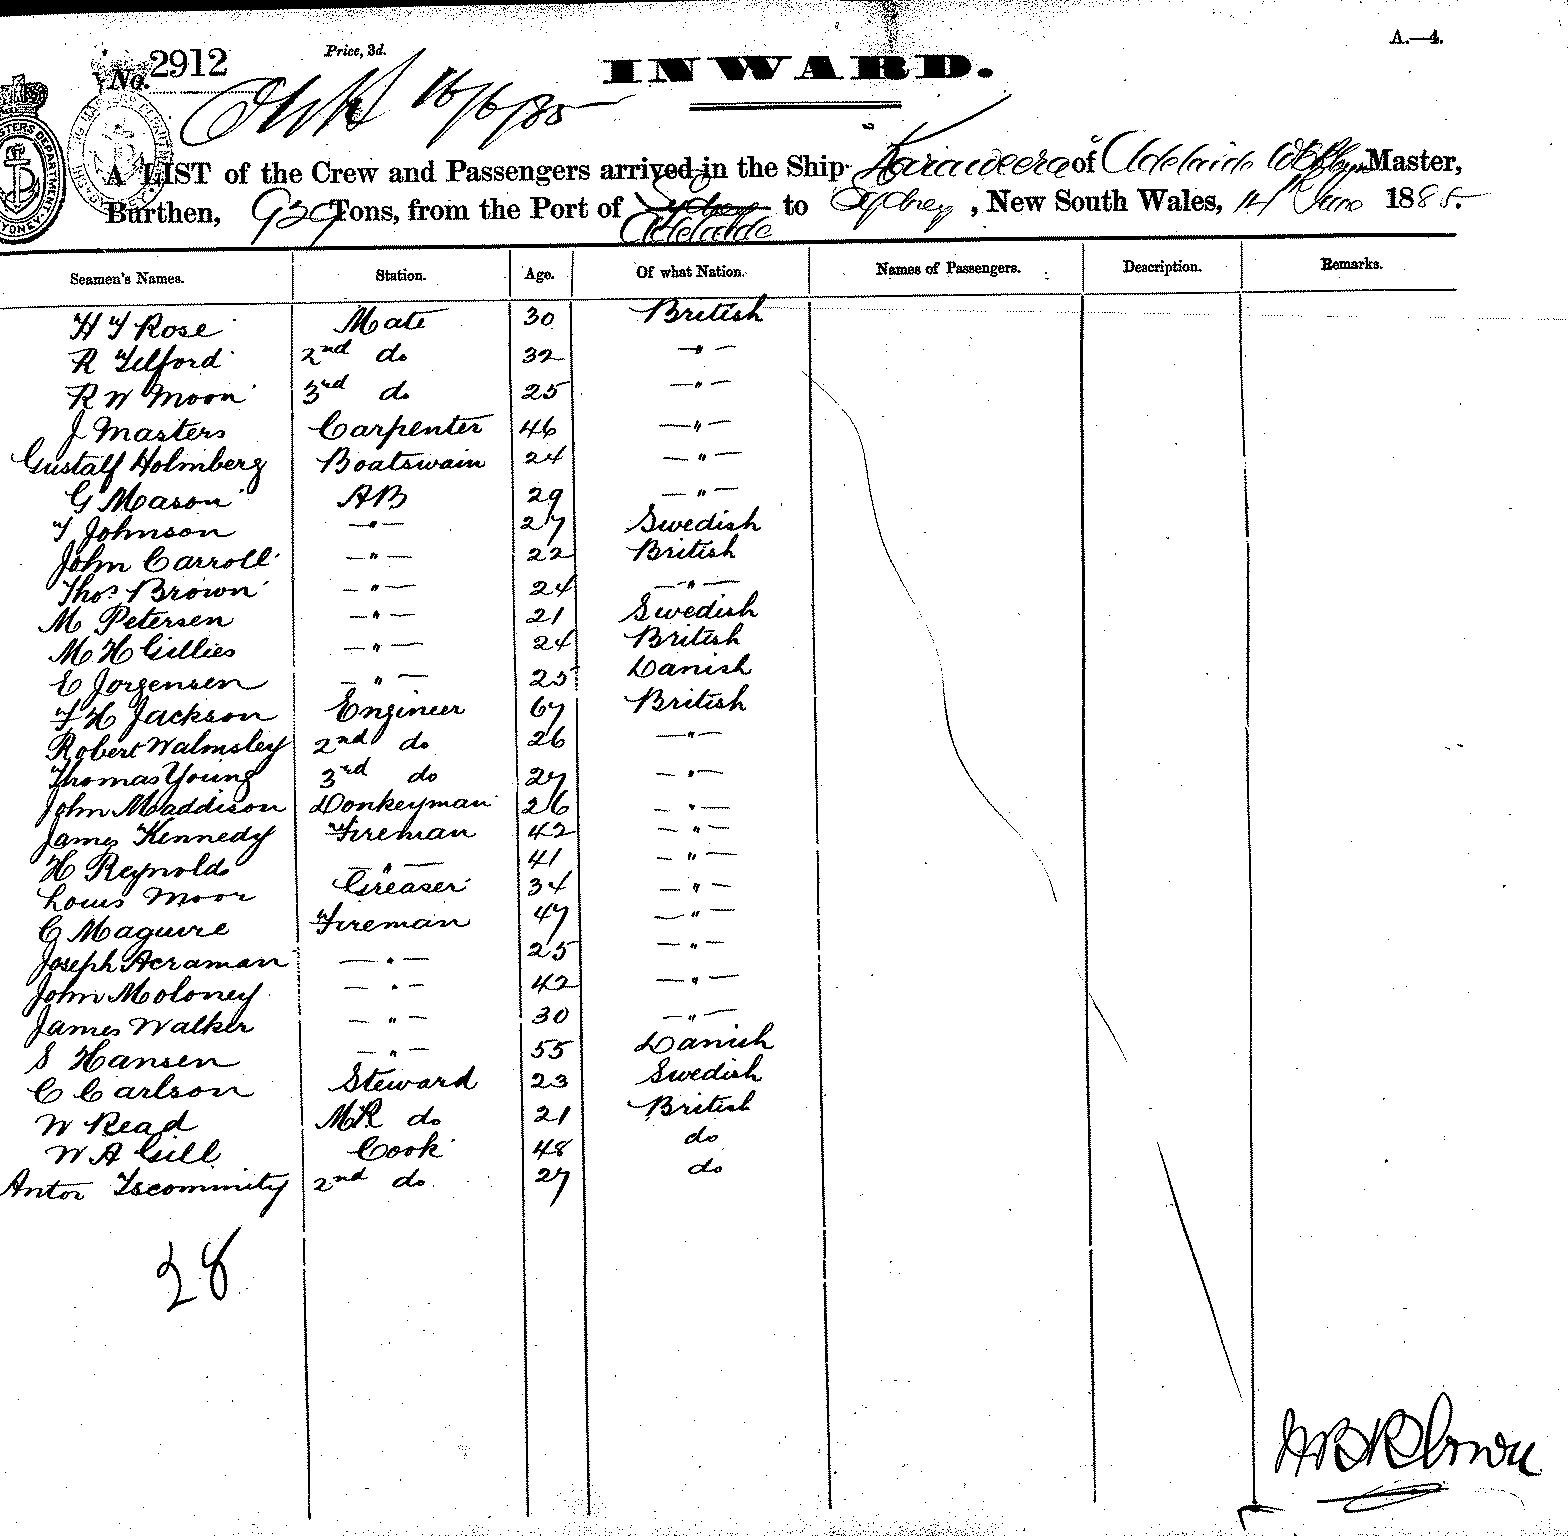 A.—4.
No. 2912
Price, 3d.
INWARD.
16/6/85
A LIST of the Crew and Passengers arrived in the Ship Karaweera of Adelaide Master,
Burthen, 939 Tons, from the Port of Sydney Adelaide to Sydney, New South Wales, 14th June 1885.
Seamen's Names. Station. Age. Of what Nation. Names of Passengers. Description. Remarks.
H T Rose Mate 30 British
R Telford 2nd do 32 —"—
R W Moon 3rd do 25 —"—
J Masters Carpenter 46 —"—
Gustalf Holmberg Boatswain 24 —"—
G Mason AB 29 —"—
T Johnson —"— 27 Swedish
John Carroll —"— 22 British
Thos Brown —"— 24 —"—
M Petersen —"— 21 Swedish
M H Gillies —"— 24 British
E Jorgensen —"— 25 Danish
T H Jackson Engineer 67 British
Robert Walmsley 2nd do 26 —"—
Thomas Young 3rd do 27 —"—
John Maddison Donkeyman 26 —"—
James Kennedy Fireman 42 —"—
H Reynolds —"— 41 —"—
Louis Moor Greaser 34 —"—
G Maguire Fireman 47 —"—
Joseph Acraman —"— 25 —"—
John Moloney —"— 42 —"—
James Walker —"— 30 —"—
S Hansen —"— 55 Danish
C Carlson Steward 23 Swedish
W Read MR do 21 British
W A Gill Cook 48 do
Antor 2nd do 27 do
28